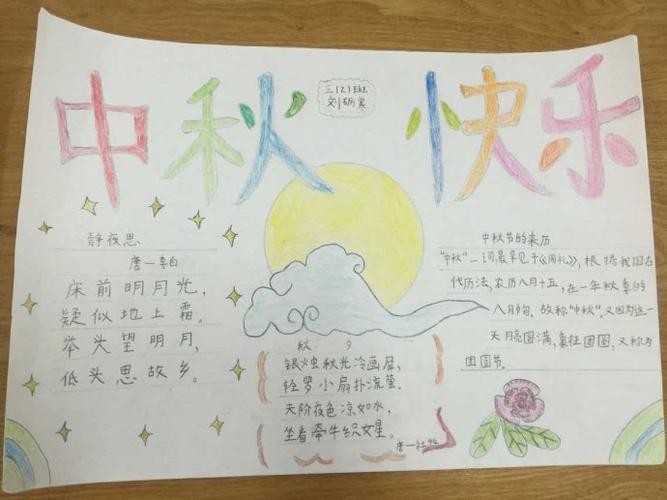 中秋快乐
三(2)班
刘
静夜思
唐一李白
床前明月光，
疑似地上霜。
举头望明月，
低头思故乡。
秋 夕
银烛秋光冷画屏，
轻罗小扇扑流萤。
天阶夜色凉如水，
坐看牵牛织女星。
唐一杜牧
中秋节的来历
"中秋"一词,最早见于《周礼》，根据我国古
代历法,农历八月十五,在一年秋季的
八月旬，故称"中秋"。又因为这一
天月亮圆满,象征团圆,又称为
团圆节。